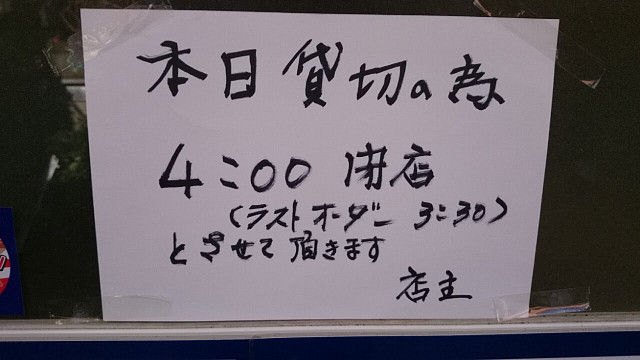 本日貸切の為
4:00 閉店
(ラストオーダー 3:30)
とさせて頂きます
店主